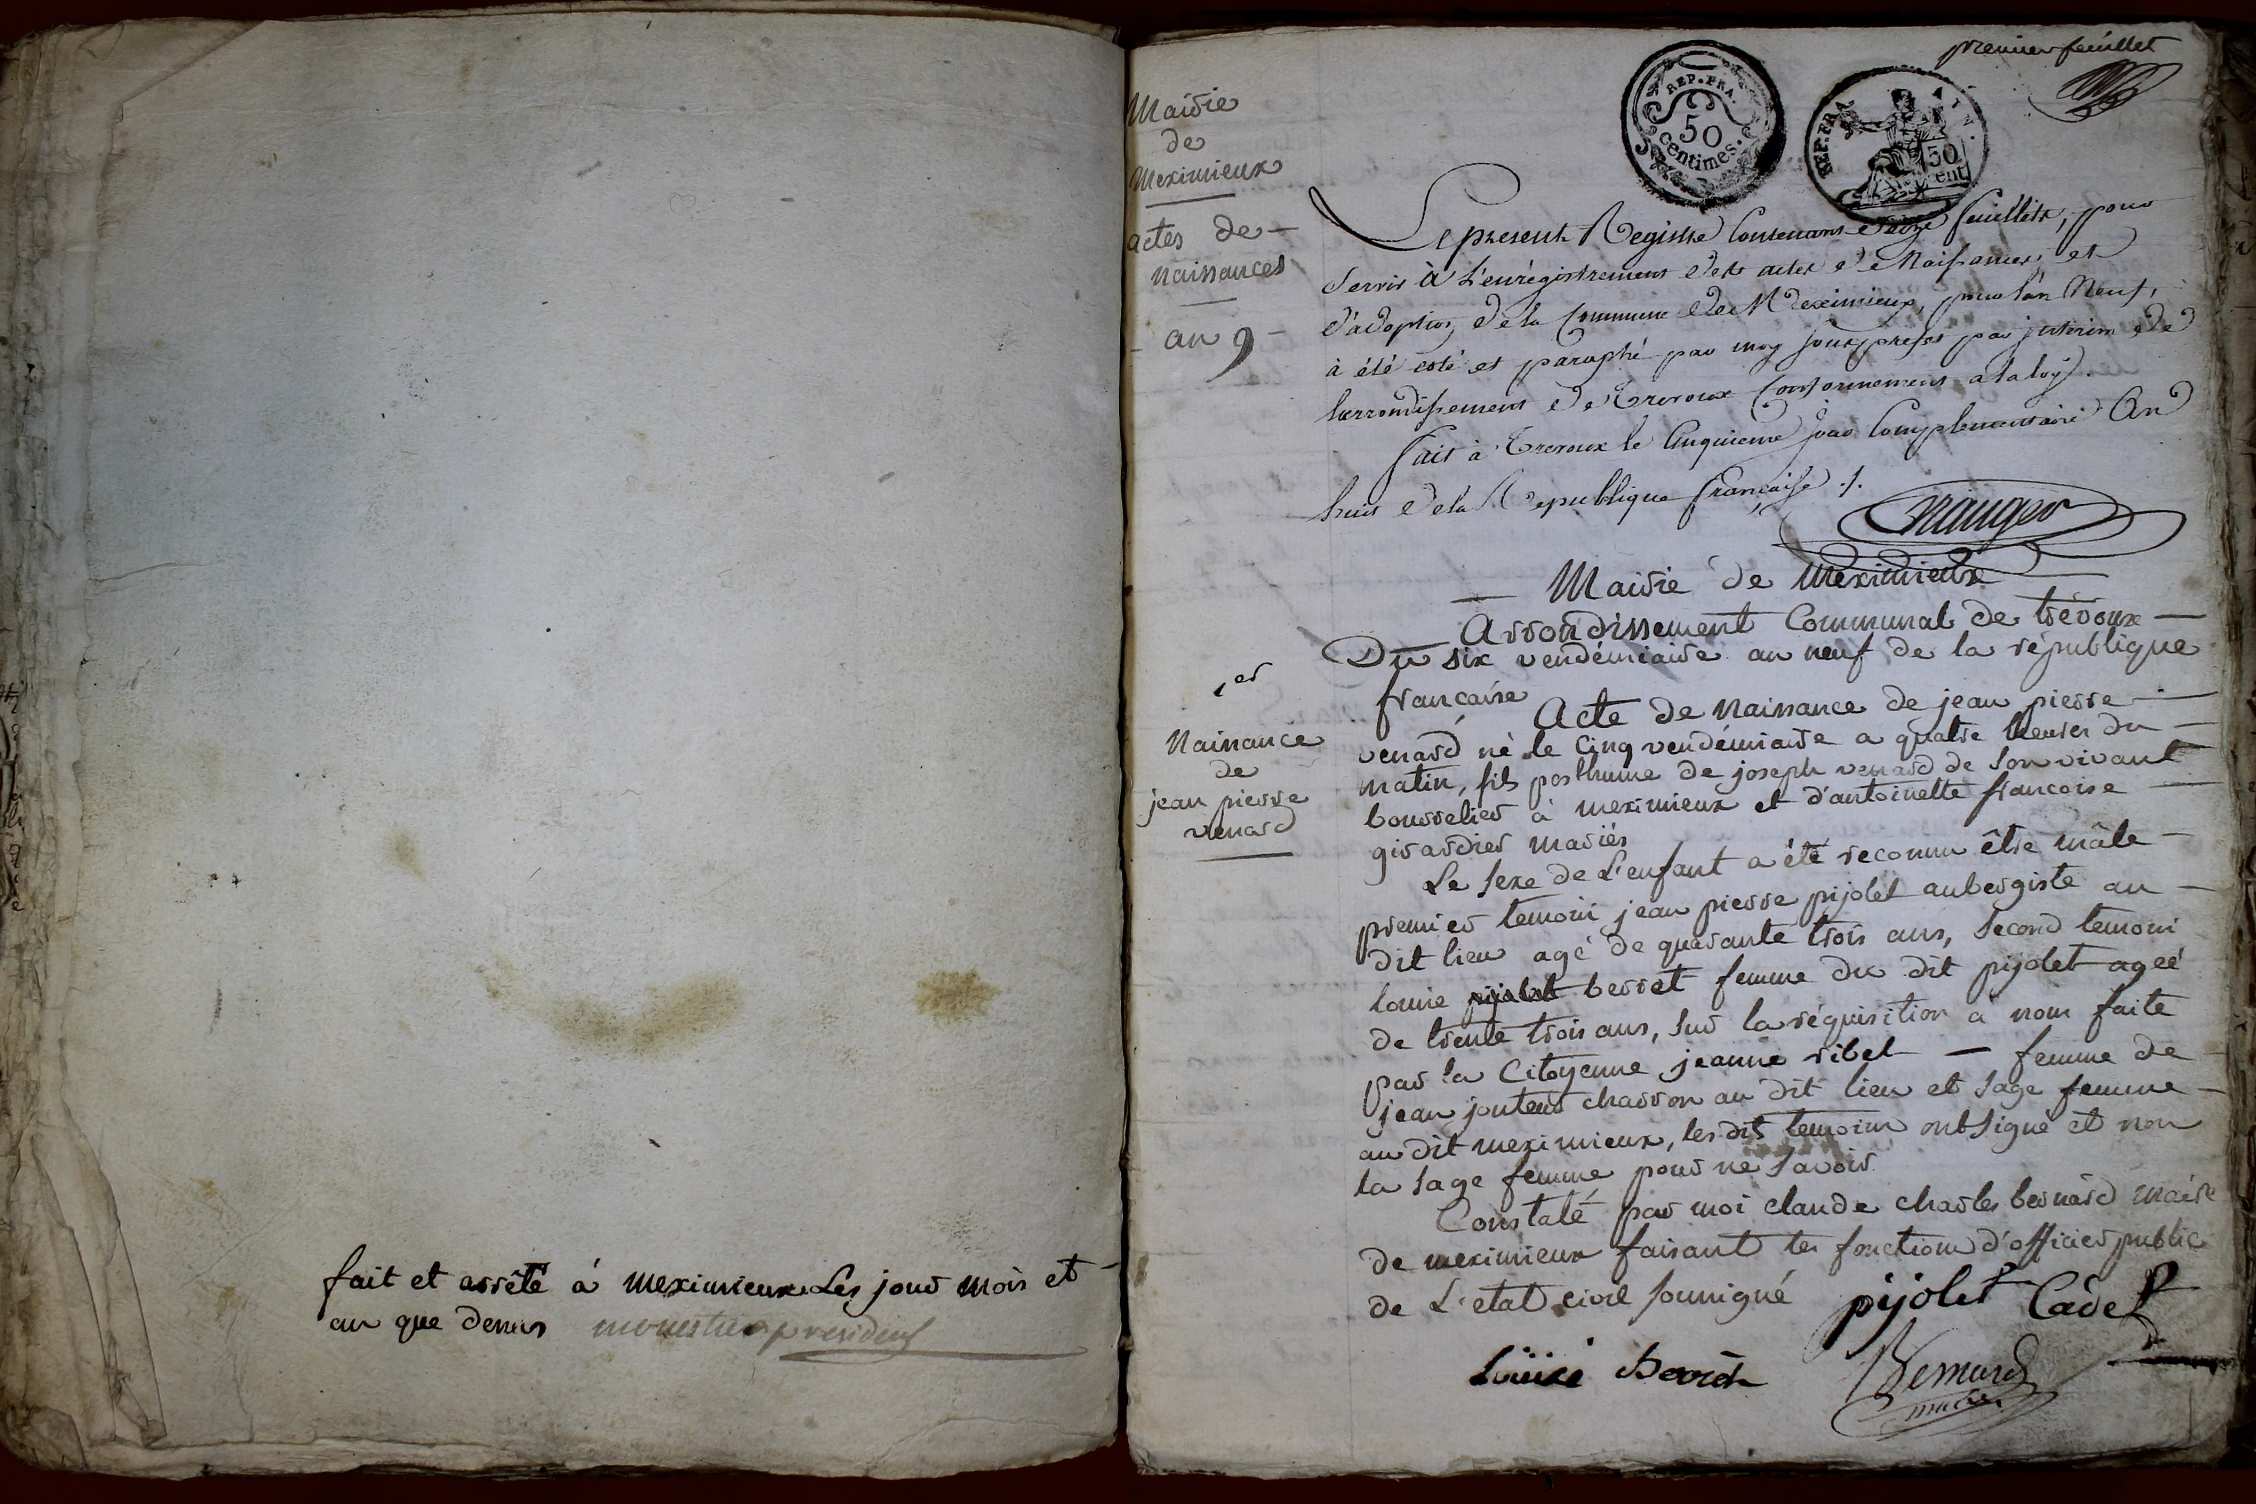 fait et arrêté à meximieux Les jour mois et
an que dessus monestier president
premier feuillet
REP. FRA.
50
centimes.
REP. FRA. AIN.
50
cent
Mairie
de
Meximieux
actes de
naissances
an 9
Le present Registre Contenant feuillets, pour
servir à L'enrégistrement des actes de Naissances, et
d'adoption, de la Commune de Meximieux, pour l'an Neuf,
à été coté et paraphé par moy sous prefet par interim de
larrondissement de Trevoux Conformement a la loy.
fait à Trevoux le Cinquieme jour Complementaire An
huit de la Republique française ./.
Mairie de Meximieux
Arrondissement Communal de trévoux
Du six vendémiaire an neuf de la république
francaise
1er
Naissance
de
jean pierre
venard
Acte de naissance de jean pierre
venard né le Cinq vendémiaire a quatre heures du
matin, fils posthume de joseph venard de son vivant
bourrelier à meximieux et d'antoinette francoise
girardier mariés
Le sexe de L'enfant a été reconnu être mâle
premier temoin jean pierre pijolet aubergiste au
dit lieu agé de quarante trois ans, second temoin
louise pijolet berret femme du dit pijolet agée
de trente trois ans, sur la réquisition a nous faite
par la Citoyenne jeanne ribet femme de
jean charron au dit lieu et sage femme
au dit meximieux, les dits temoins ont signé et non
la sage femme pour ne savoir
Constaté par moi claude charles bernard maire
de meximieux faisant les fonctions d'officier public
de L'etat civil soussigné pijolet Cadet
Bernard
maire